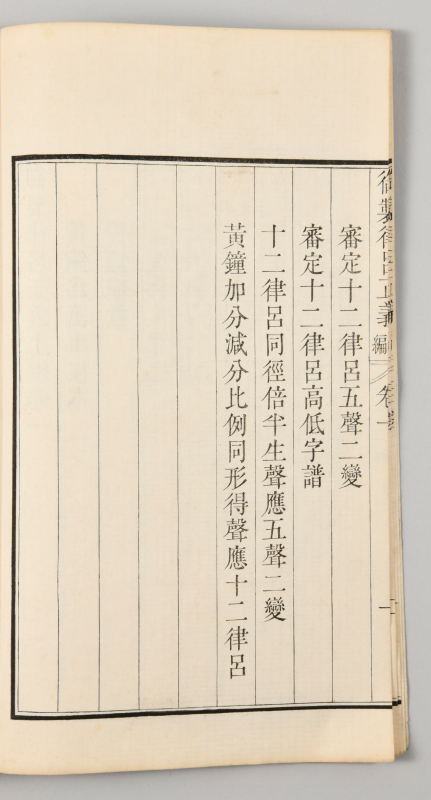 御製律呂正義
編
卷一
二
審定十二律呂五聲二變
審定十二律呂高低字譜
十二律呂同徑倍半生聲應五聲二變
黃鐘加分減分比例同形得聲應十二律呂